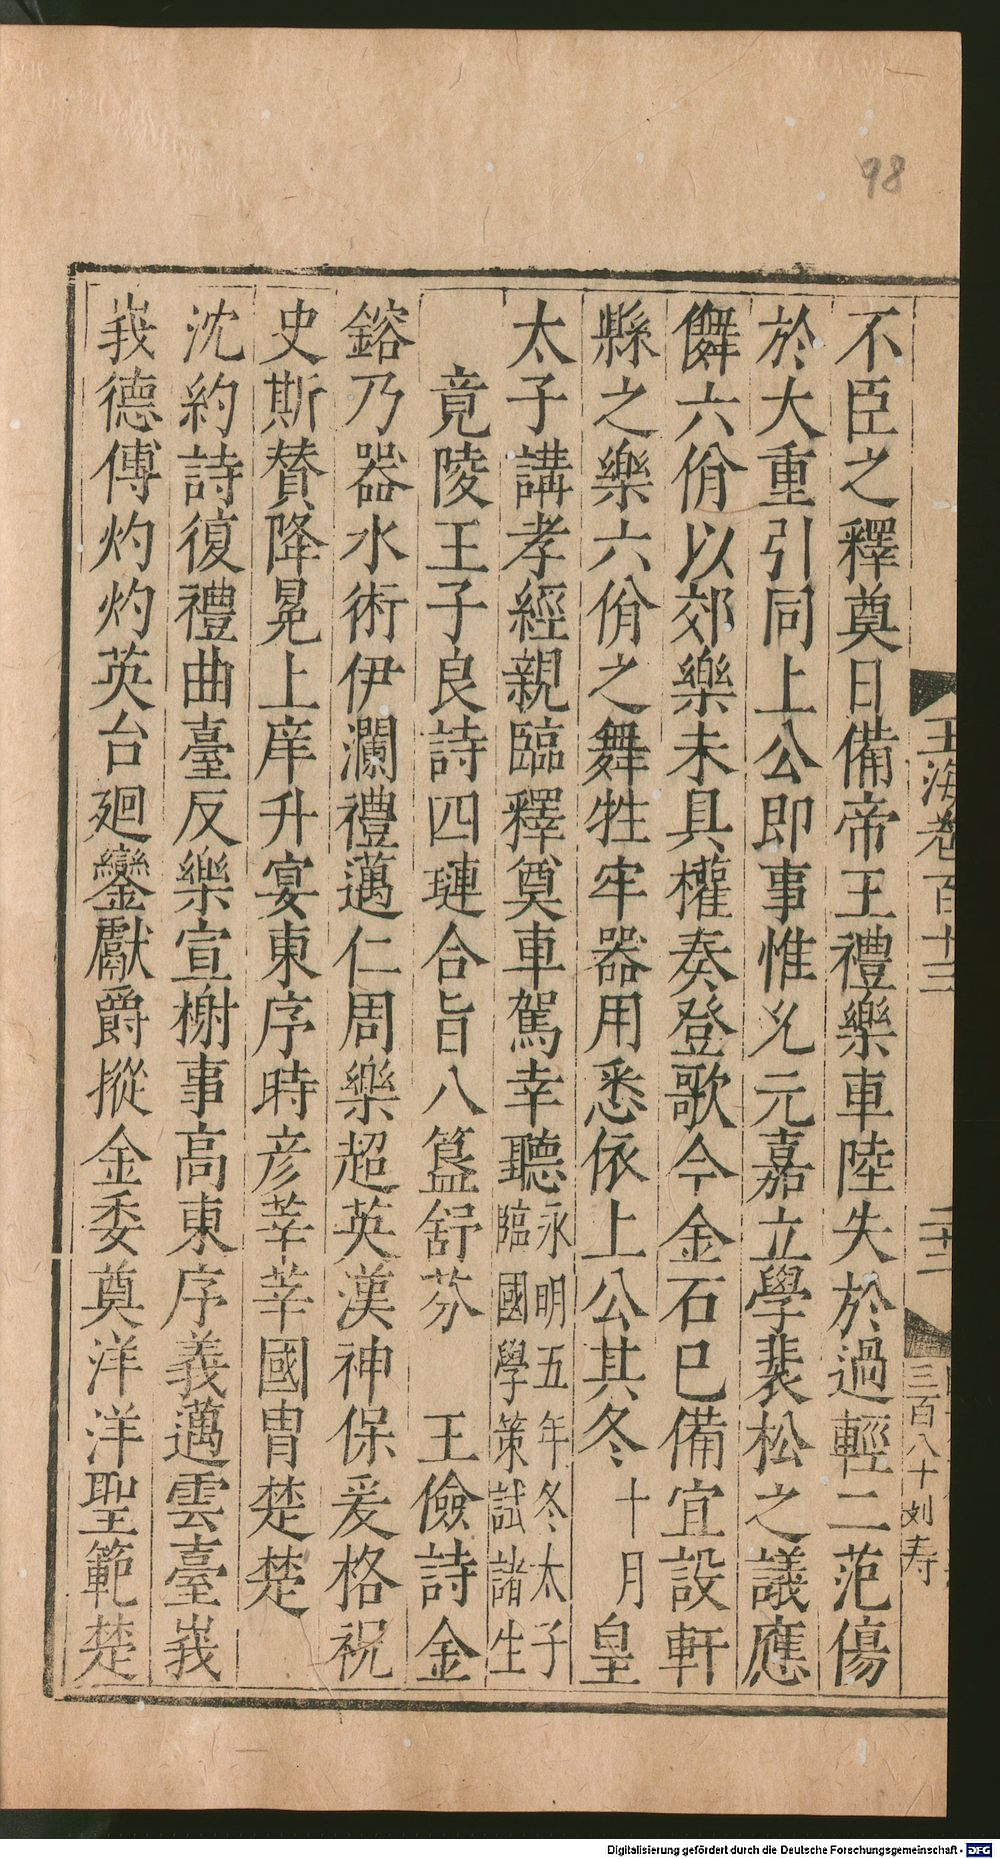 98
玉海卷百十三
二十二
三百八十刘寿
不臣之釋奠日備帝王禮樂車陸失於過輕二范傷
於大重引同上公即事惟允元嘉立學裴松之議應
儛六佾以郊樂未具權奏登歌今金石已備宜設軒
縣之樂六佾之舞牲牢器用悉依上公其冬十月皇
太子講孝經親臨釋奠車駕幸聽永明五年冬太子臨國學策試諸生
竟陵王子良詩四璉合旨八簋舒芬 王儉詩金
鎔乃器水術伊瀾禮邁仁周樂超英漢神保爰格祝
史斯賛降冕上庠升宴東序時彦莘莘國胄楚楚
沈約詩復禮曲臺反樂宣榭事高東序義邁雲臺峩
峩德傅灼灼英台廻鑾獻爵摐金委奠洋洋聖範楚
Digitalisierung gefördert durch die Deutsche Forschungsgemeinschaft - DFG